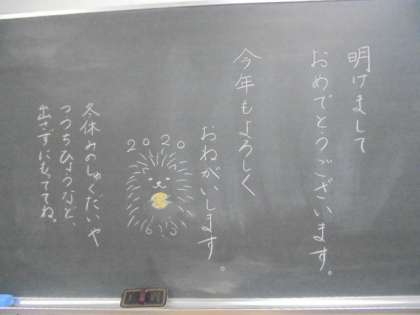 明けまして
おめでとうございます。
今年もよろしく
おねがいします。
2020
6の3
冬休みのしゅくだいや
つうちひょうなど、
出さずにもっててね。